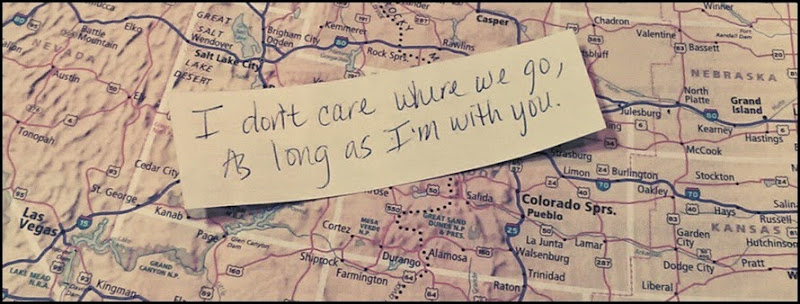 I don't care where we go,
As long as I'm with you.
mucca
Battle
Mountain
Elko
GREAT
SALT
Wendover
LAKE
DESERT
Brigham City
Ogden
Kemmerer
80
Salt Lake City
Rock Sprs.
ROCKY
287
Casper
Rawlins
Chadron
Valentine
Winner
Fort
Randall Dam
20
Bassett
NEBRASKA
NEVADA
Austin
Ely
Tonopah
Cedar City
St. George
Kanab
Page
Glen Canyon
Dam
Las
Vegas
15
LAKE MEAD
N.R.A.
GRAND
CANYON N.P.
Kingman
North
Platte
Grand
Island
80
Julesburg
Kearney
Hastings
McCook
Strasburg
Limon
Burlington
Stockton
24
40
70
Oakley
Hays
Salina
Russell
KANSAS
Hutchinson
Garden
City
Dodge City
Pratt
Liberal
Colorado Sprs.
Pueblo
25
La Junta
Lamar
Walsenburg
Trinidad
Raton
50
Salida
550
MESA
VERDE
GREAT SAND
DUNES N.P.
& PRES.
Cortez
Durango
Alamosa
Shiprock
Farmington
160
64